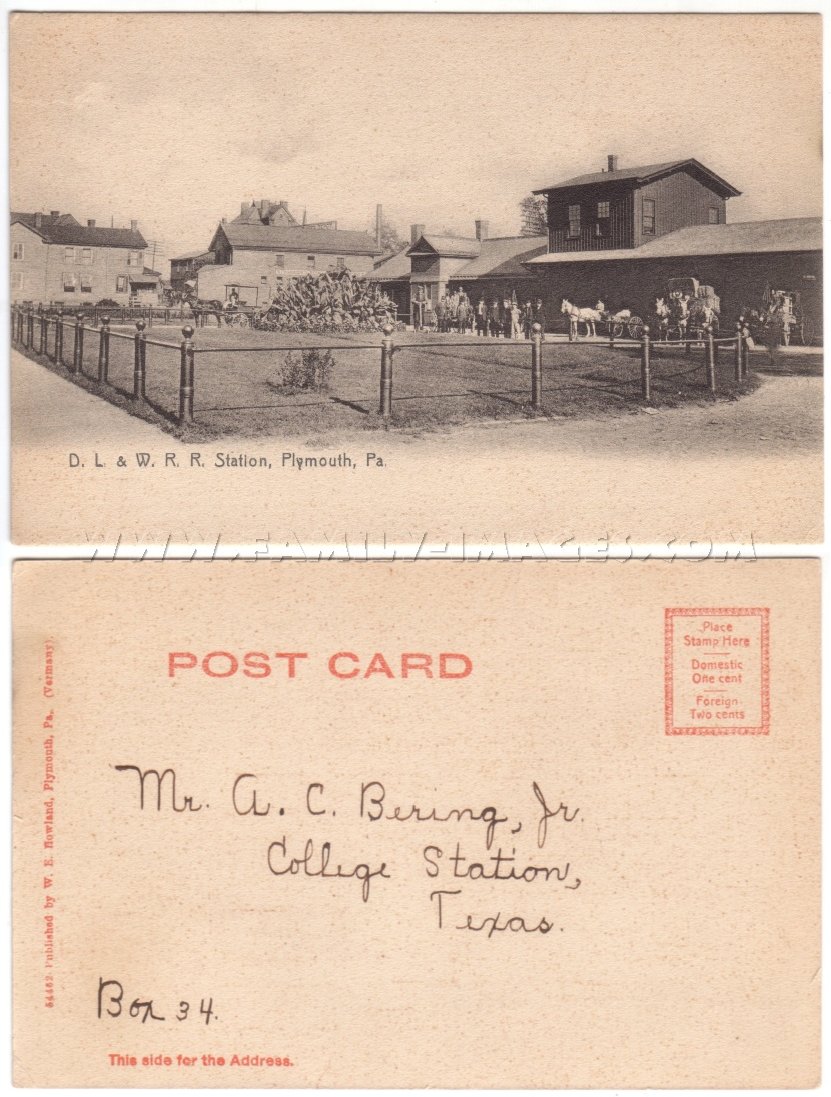 D. L. & W. R. R. Station, Plymouth, Pa.
WWW.FAMILY-IMAGES.COM
POST CARD
Place
Stamp Here
Domestic
One cent
Foreign
Two cents
54452. Published by W. E. Howland, Plymouth, Pa. (Vermany).
Mr. A. C. Bering, Jr.
College Station,
Texas.
Box 34.
This side for the Address.